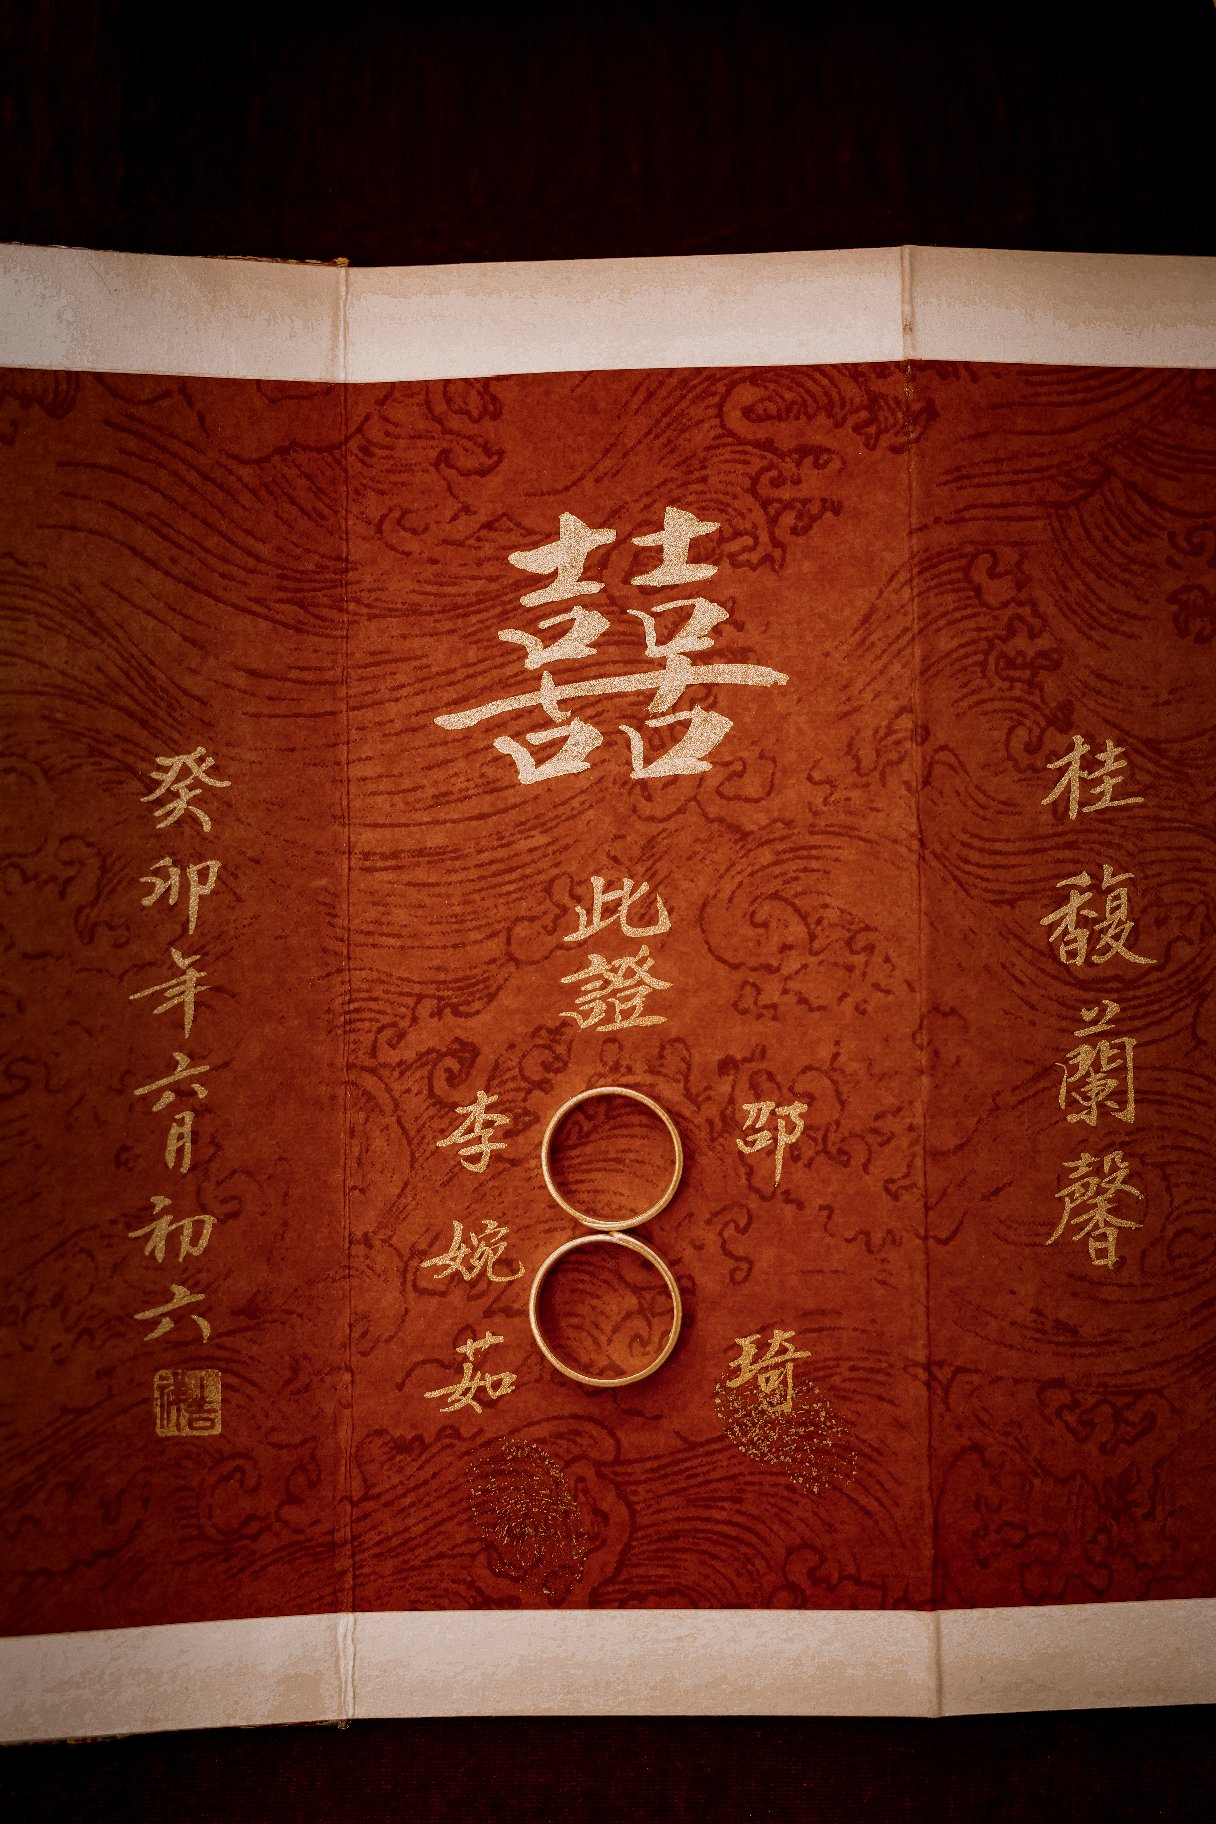 桂馥蘭馨
囍
此證
邵琦
李婉茹
癸卯年六月初六